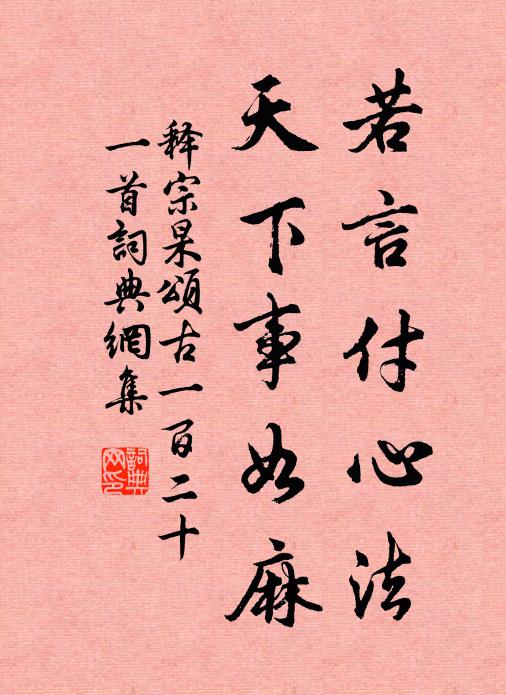 若言付心法
天下事如麻
释宗杲頌古一百二十
一首詞典網集
詞典网印